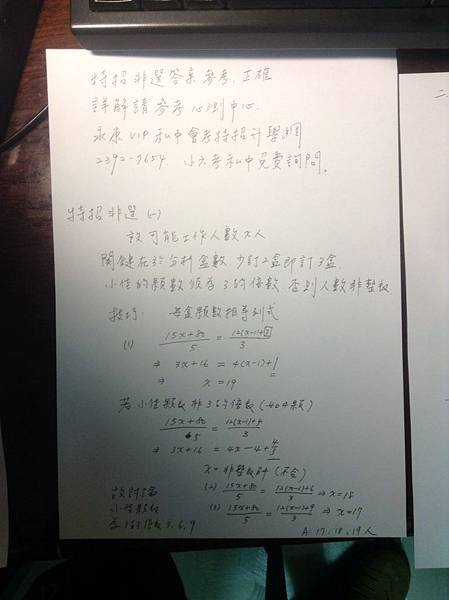 特招非選答案參考,正確
詳解請參考心測中心.
永康VIP私中會考特招升學網
2392-9654. 小六考私中免費詢問。
特招非選(一)
設可能工作人數x人
關鍵在於分析盒數,少訂2盒即訂3盒.
小佳的顆數須為3的倍數 否則人數非整數
技巧: 每盒顆數相等列式
(1) (15x+80)/5 = (12(x-1)+3)/3
⇒ 3x+16 = 4(x-1)+1
⇒ x=19
若小佳顆數非3的倍數(如4顆)
(15x+80)/5 = (12(x-1)+4)/3
⇒ 3x+16 = 4x-4+4/3
x=非整數解(不合)
故討論
小佳顆數
為3的倍數3,6,9
(2) (15x+80)/5 = (12(x-1)+6)/3 ⇒ x=18
(3) (15x+80)/5 = (12(x-1)+9)/3 ⇒ x=17
A: 17, 18, 19人
二